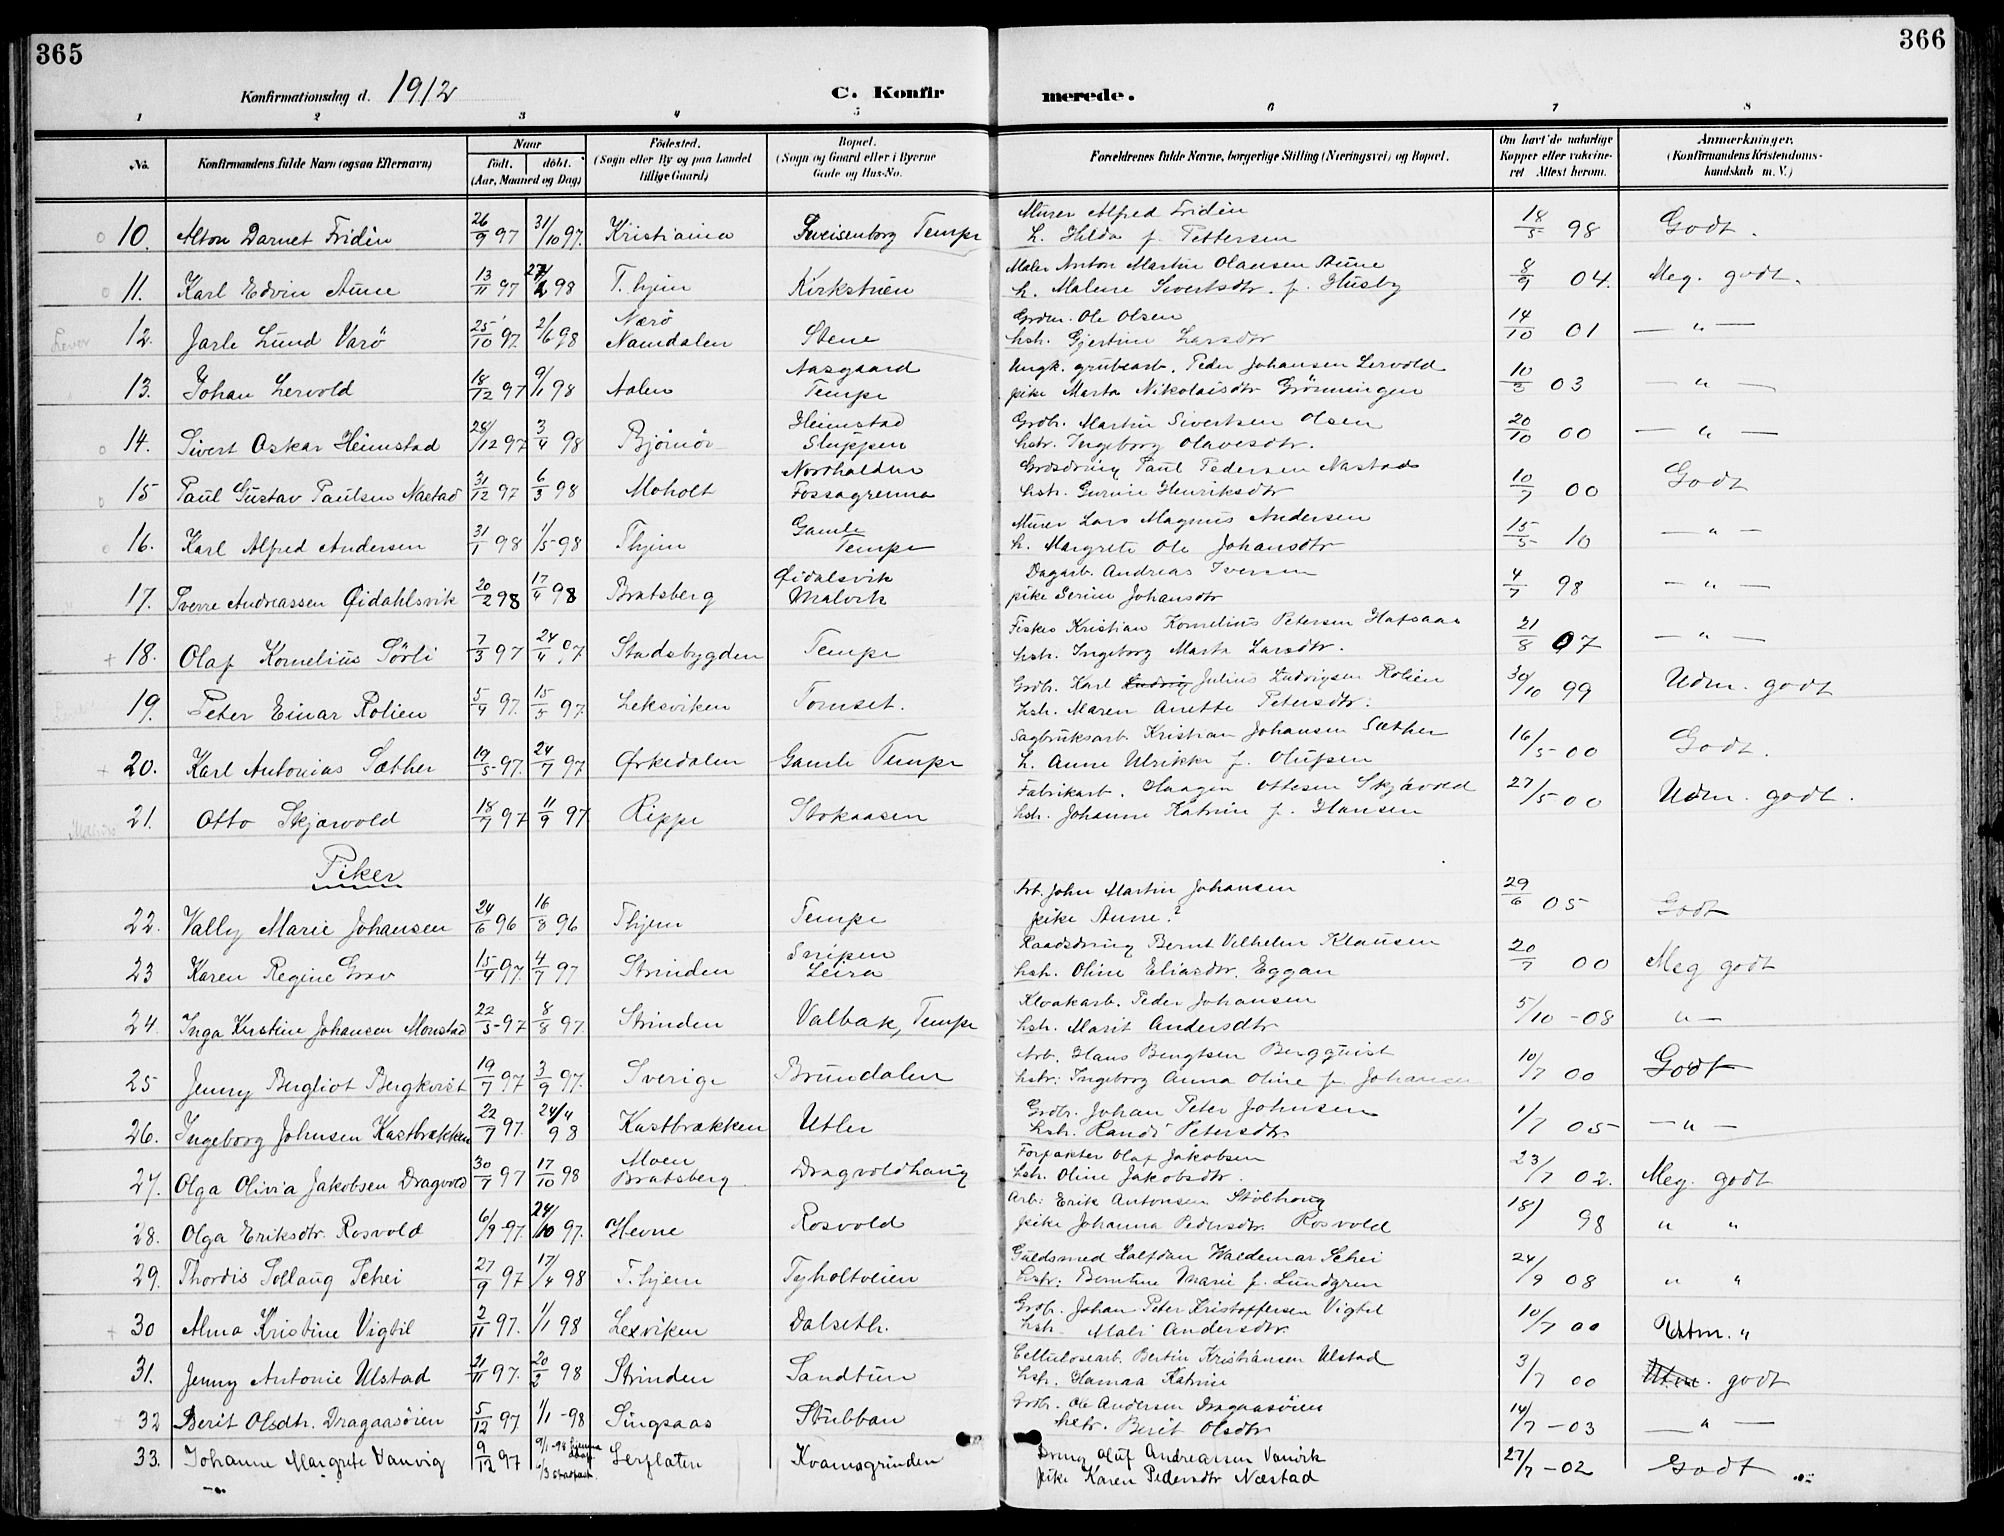 365
366
Konfirmationsdag d. 1912
C. Konfirmerede.
1 2 3 4 5 6 7 8
No. | Konfirmandens fulde Navn (ogsaa Efternavn) | Naar født. døbt. (Aar, Maaned og Dag) | Fødested. (Sogn eller By og paa Landet tillige Gaard) | Bopæl. (Sogn og Gaard eller i Byerne Gade og Hus-No. | Forældrenes fulde Navne, borgerlige Stilling (Næringsvei) og Bopæl. | Om havt de naturlige Kopper eller vakcineret Attest herom. | Anmerkninger. (Konfirmandens Kristendomskundskab m. V.)
10. Alton Darnet Fridén 26/9 97 31/10 97. Kristiania Sveisenborg Tempe Murer Alfred Fridén h. Hilda f. Pettersen 18/5 98 Godt.
11. Karl Edvin Aune 13/11 97 27/2 98 T.hjem Kirkstuen Maler Anton Martin Olausen Aune h. Malene Sivertsdtr. f. Husby 8/9 04. Meg. godt.
12. Jarle Lund Varö 25/10 97. 2/6 98 Nærö Namdalen Stene Grdm. Ole Olsen hstr. Gjertine Larsdtr 14/10 01 — " —
13. Johan Lervold 18/12 97 9/1 98 Aalen Aasgaard Tempe Ungk. grubearb. Peder Johansen Lervold pike Marta Nikolaisdtr Grönningen 10/3 03 — " —
14. Sivert Oskar Heimstad 28/12 97 3/4 98 Bjömör Heimstad Sluppen Grdbr. Martin Sivertsen Olsen hstr. Ingeborg Olavesdtr. 20/10 00 — " —
15 Paul Gustav Paulsen Næstad 31/12 97 6/3 98 Moholt Nordhalden Fossagrenna Grdsdreng Paul Pedersen Næstad hstr. Gurine Henriksdtr 10/7 00 Godt
16. Karl Alfred Andersen 31/1 98 1/5 98 Thjem Gamle Tempe Murer Lars Magnus Andersen h. Margrete Ole Johansdtr 15/5 10 — " —
17. Sverre Andreassen Øidahlsvik 20/2 98 17/4 98 Bratsberg Øidalsvik Malvik Dagarb. Andreas Iversen pike Serine Johansdtr 4/7 98 — " —
18. Olaf Kornelius Sörli 7/3 97 24/4 97 Stadsbygden Tempe Fisker Kristian Kornelius Petersen Hafsaas hstr. Ingeborg Marta Larsdtr. 21/8 07 — " —
19. Peter Einar Rolien 5/4 97. 15/5 97. Leksviken Tomset. Grdbr. Karl Ludvig Julius Ludvigsen Rolien hstr. Maren Anette Petersdtr. 30/10 99 Udm. godt
20. Karl Antonius Sæther 19/5 97. 24/7 97 Ørkedalen Gamle Tempe Sagbruksarb Kristian Johansen Sæther h. Anne Ulrikke f. Olufsen 16/5 00 Godt.
21. Otto Skjærvold 18/7 97 11/9 97 Rippe Stokaasen Fabrikarb. Haagen Ottesen Skjævold hstr. Johanne Katrine f. Hansen 27/5 00 Udm. godt.
Piker
22. Vally Marie Johansen 24/6 96 16/8 96 Thjem Tempe Arb. John Martin Johansen pike Anne.? 29/6 05 Godt
23 Karen Regine Grav 15/4 97. 4/7 97 Strinden Snipen Leira Raadsdreng Bernt Vilhelm Klausen hstr. Oline Eliasdtr. Eggan 20/7 00 Meg godt
24. Inga Kirstine Johansen Monstad 22/5 97 8/8 97. Strinden Valbak, Tempe Kloakarb. Peder Johansen hstr. Marit Andersdtr 5/10 - 08 " —
25 Jenny Bergliot Bergkvist 19/7 97 3/9 97. Sverige Brundalen Arb. Hans Bengtsen Bergquist hstr: Ingeborg Anna Oline f. Johansen 10/7 00 Godt
26. Ingeborg Johnsen Kastbrækken 22/7 97. 24/4 98 Kastbrækken Utler Grdbr. Johan Peter Johnsen hstr. Randi Petersdtr. 1/7 05 — " —
27. Olga Olivia Jakobsen Dragvold 30/7 97 17/10 98 Moen Bratsberg Dragvoldhaug Forpakter Olaf Jakobsen hstr. Oline Jakobsdtr. 23/7 02. Meg. godt
28. Olga Eriksdtr. Rosvold 6/9 97. 24/10 97. Hevne Rosvold Arb: Erik Antonsen Stölhaug pike Johanna Pedersdtr. Rosvold 18/ 98 " "
29. Thordis Sollaug Schei 27/9 97 17/4 98 T.hjem Tyholtveien Guldsmed Halfdan Waldemar Schei hstr: Berntine Marie f. Lundgren 24/9 08 " "
30 Alma Kristine Vigtil 2/11 97. 1/1 98 Lexviken Dalseth. Grdbr. Johan Peter Kristoffersen Vigtil hstr Mali Andersdtr. 10/7 00 Utm. "
31. Jenny Antonie Ulstad 21/11 97. 20/2 98 Strinden Sandtun Cellulosearb. Bertin Kristiansen Ulstad hstr. Hanna Katrine 3/7 00 Utm. godt
32 Berit Olsdtr. Dragaasöien 5/12 97 1/1 - 98 Singsaas Stubban Grdbr. Ole Andersen Dragaasöien hstr. Berit Olsdtr 14/7 - 03 — " —
33. Johanne Margrete Vanvig 9/12 97 9/1 - 98 hjemmedøbt 6/3 stadfæst. Lerflaten Kvamsgrinden Dreng Oluf Andreassen Vanvik pike Karen Pedersdtr Næstad 27/7 - 02 Godt